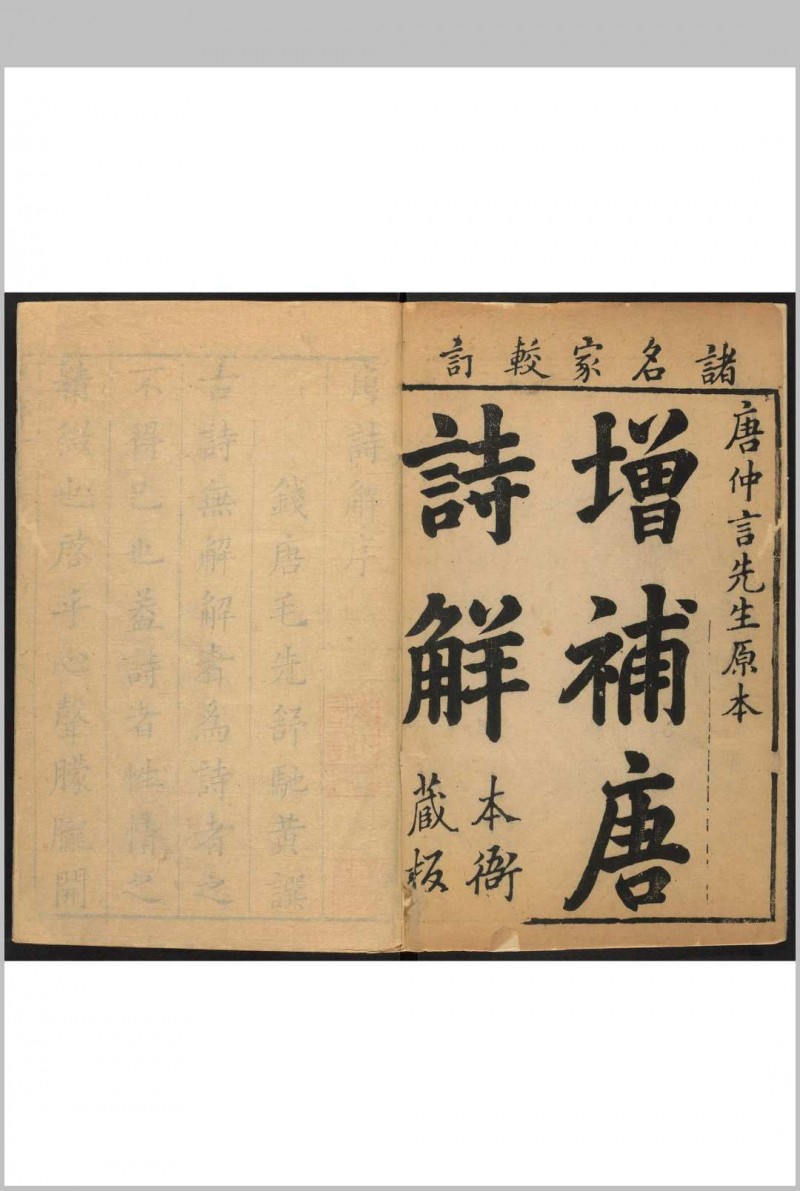 諸名家較訂
唐仲言先生原本
增補唐
詩解
本衙
藏板
唐詩解序
錢唐毛先舒馳黃譔
古詩無解解者為詩者之
不得已也蓋詩者性情之
精微也啓乎心聲朦朧開